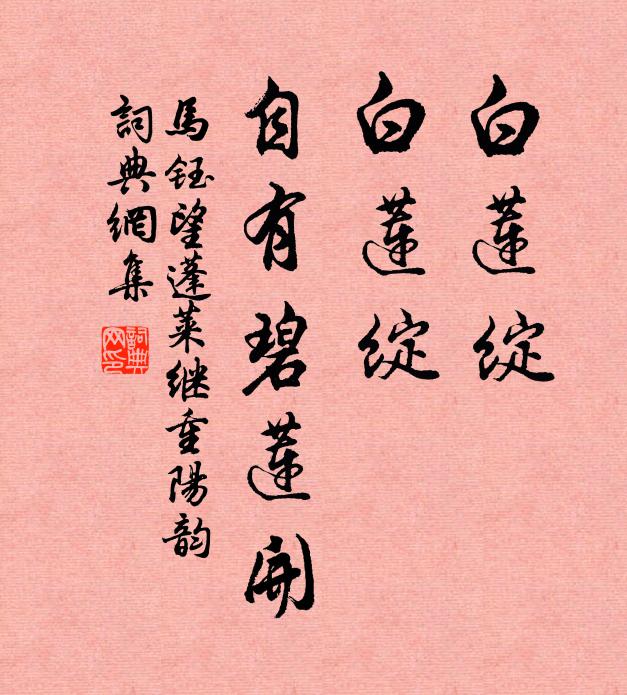 白蓮綻
白蓮綻
自有碧蓮開
馬鈺望蓬萊继重陽韵
詞典網集
詞典网印